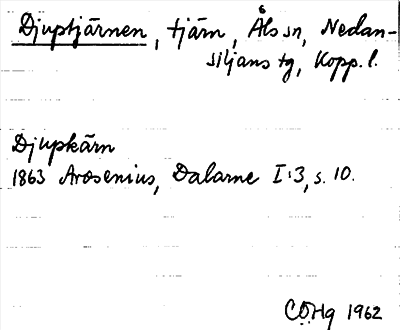 Djuptjärnen, tjärn, Åls sn, Nedan-
siljans tg, Kopp. l.
Djupkärn
1863 Arosenius, Dalarne I:3, s. 10.
CÖHg 1962